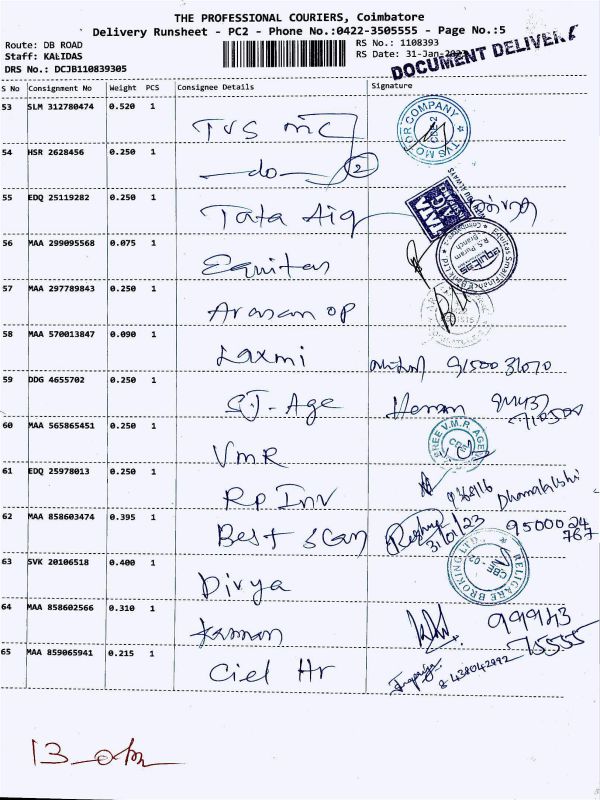 THE PROFESSIONAL COURIERS, Coimbatore
Delivery Runsheet - PC2 - Phone No.:0422-3505555 - Page No.:5
Route: DB ROAD
Staff: KALIDAS
DRS No.: DCJB110839305
RS No.: 1108393
RS Date: 31-Jan-
DOCUMENT DELIVER
S No Consignment No Weight PCS Consignee Details Signature
53 SLM 312780474 0.520 1
TVS mc
TVS MOTOR COMPANY
CBE-2
54 HSR 2628456 0.250 1
do 2
55 EDQ 25119282 0.250 1
Tata Aig
TATA AIG
WITH YOU ALWAYS
56 MAA 299095568 0.075 1
Equitas
Equitas Small Finance Bank Ltd
R.S. Puram Branch
57 MAA 297789843 0.250 1
Arasan op
58 MAA 570013847 0.090 1
Laxmi 91500 31070
59 DDG 4655702 0.250 1
SJ-Age
60 MAA 565865451 0.250 1
VMR
SHREE V.M.R. AGE
61 EDQ 25978013 0.250 1
Rp Inv
62 MAA 858603474 0.395 1
Best scan 31/01/23 9500024
767
63 SVK 20106518 0.400 1
Divya
RELIGARE BROKING LTD.
CBE - 03
64 MAA 858602566 0.310 1
99943
75555
65 MAA 859065941 0.215 1
Ciel Hr
13